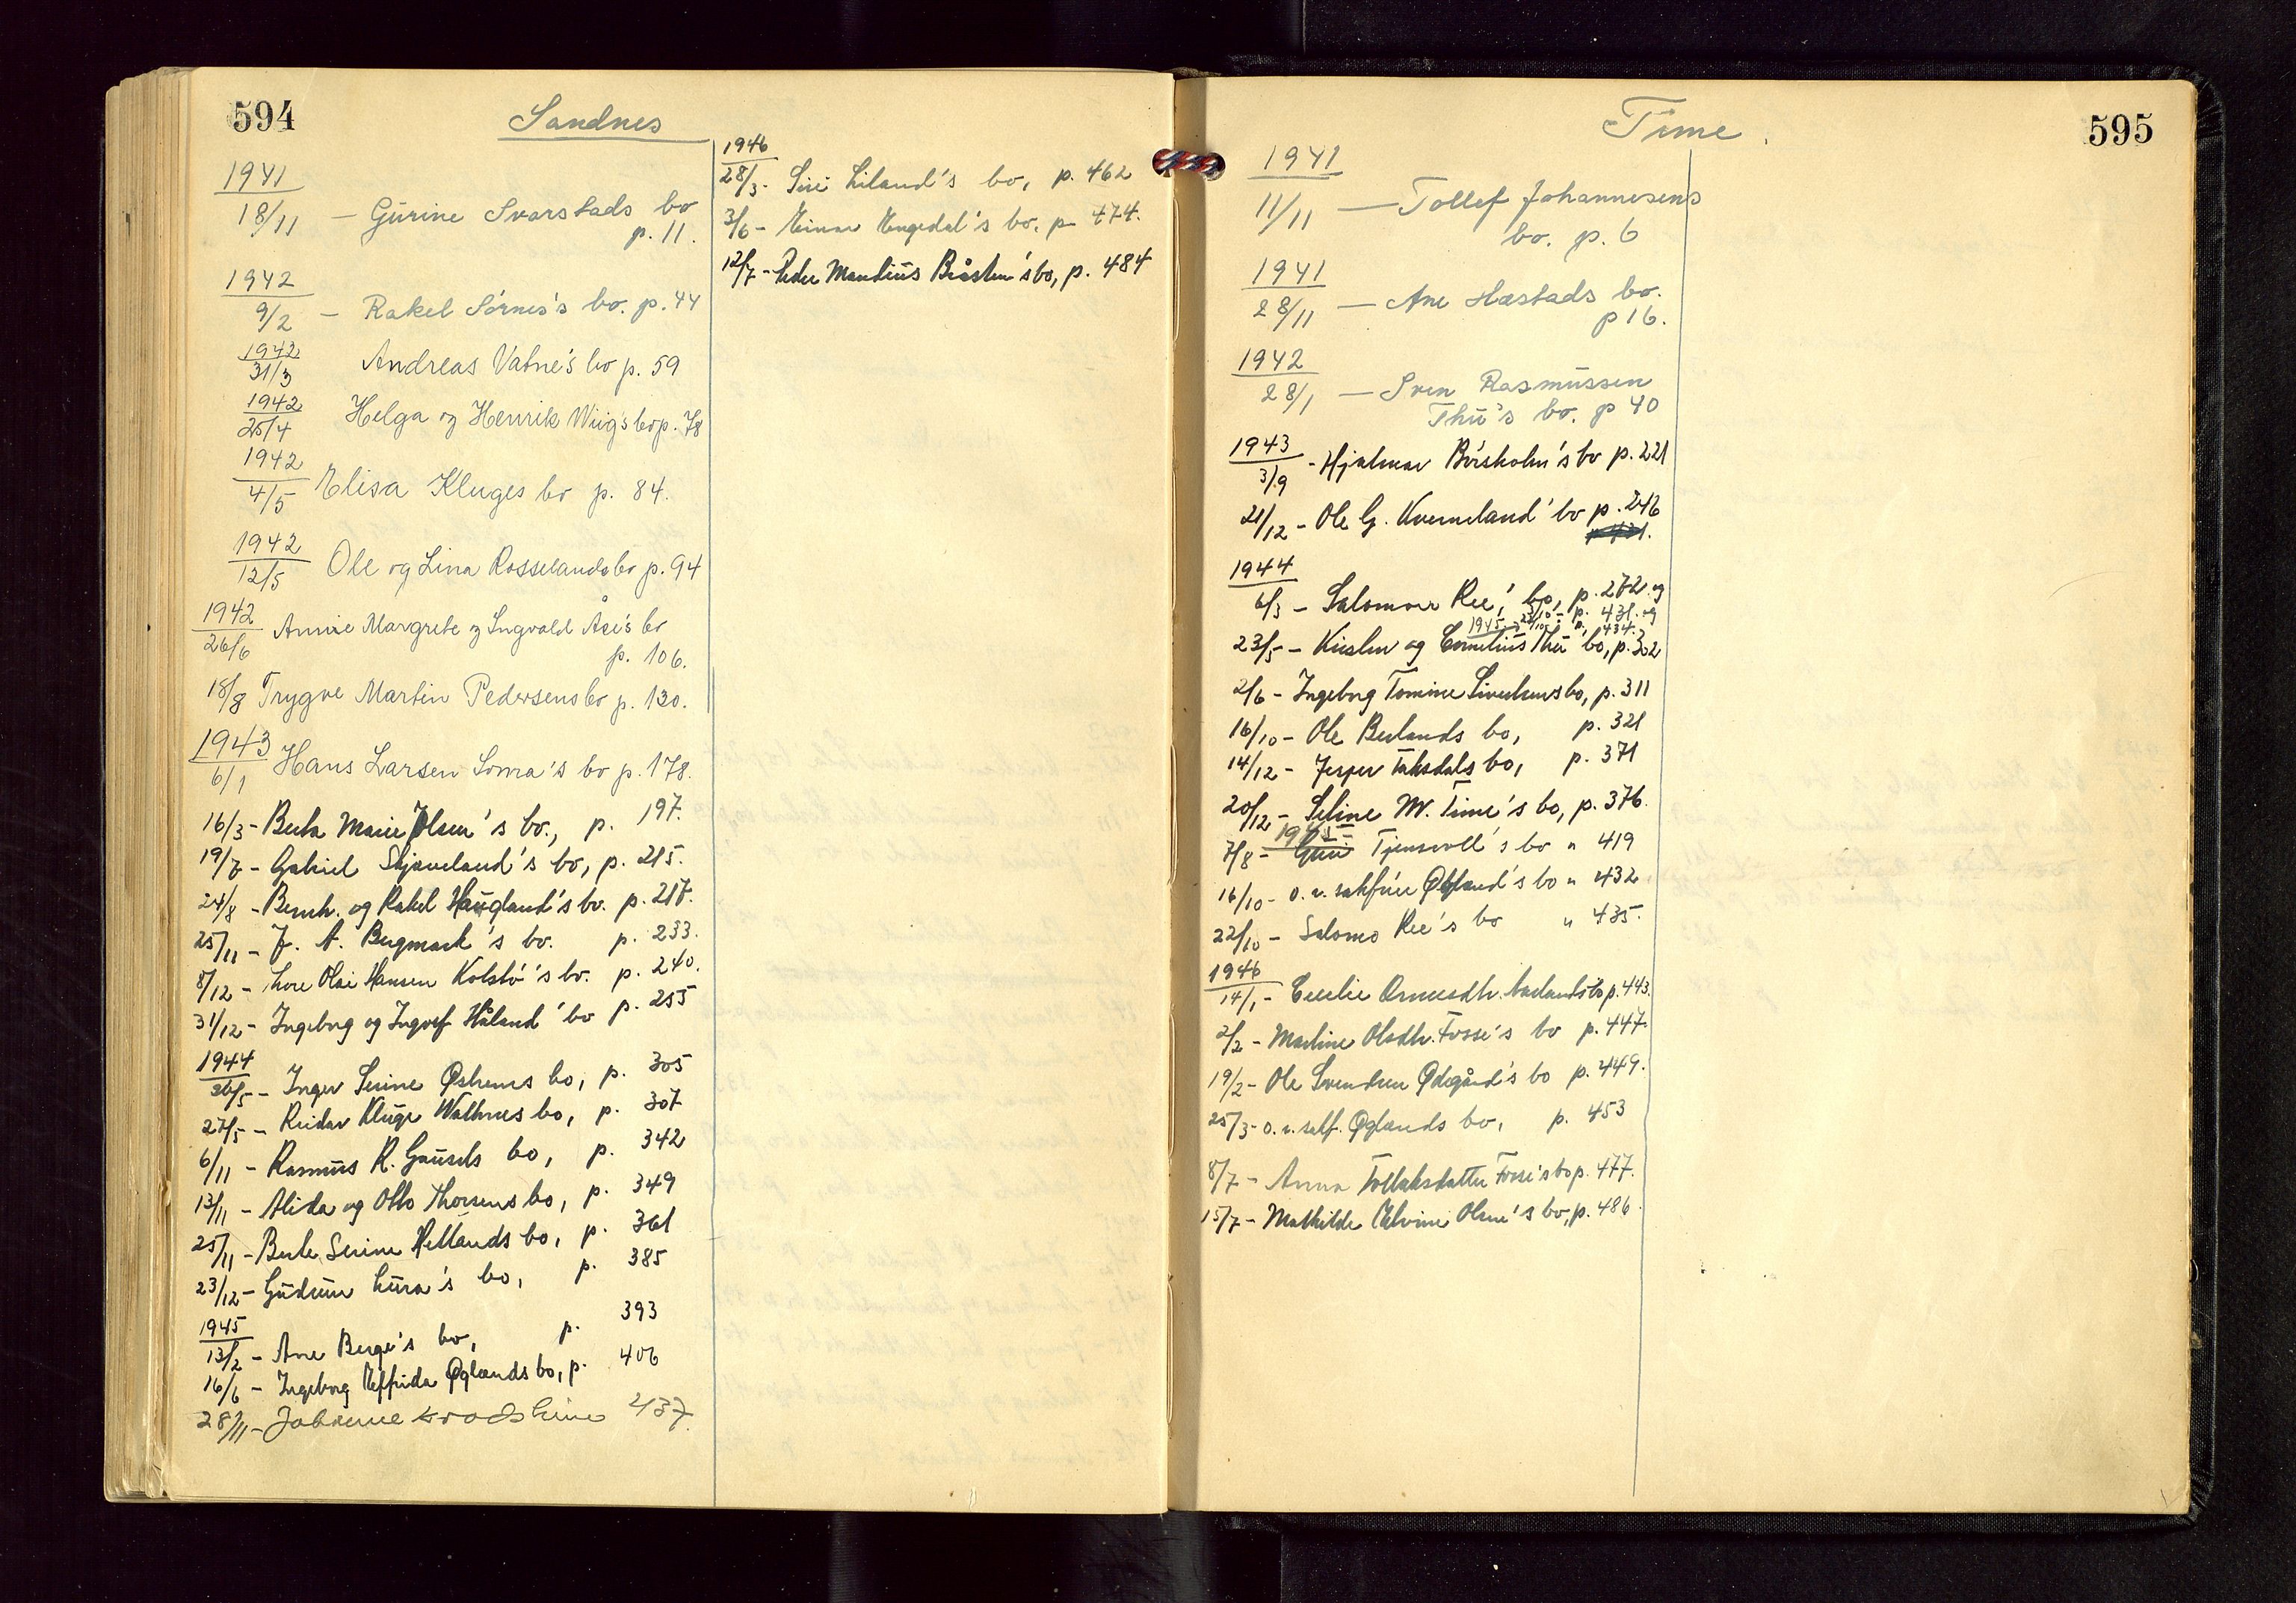 594
Sandnes
1941
18/11 — Gurine Svarstads bo
p. 11.
1942
9/2 — Rakel Sørnes's bo. p. 44
1942
31/3 Andreas Vatne's bo p. 59
1942
25/4 Helga og Henrik Wiig's bo p. 78
1942
4/5 Elisa Kluges bo p. 84.
1942
12/5 Ole og Lina Rosselands bo p. 94
1942
26/6 Annie Margrete og Ingvald Åse's bo
p. 106.
18/8 Trygve Martin Pedersens bo p. 130.
1943
6/1 Hans Larsen Soma's bo p. 178.
16/3 - Berta Marie Olsen's bo., p. 197.
19/7 - Gabriel Skjæveland's bo, p. 215.
24/8 - Bernh. og Rakel Haugland's bo. p. 217.
25/11 - J. A. Bergmark's bo. p. 233.
8/12 - Thore Olai Hansen Kolstø's bo. p. 240.
31/12 - Ingeborg og Ingvef Håland' bo p. 255
1944
26/5 - Inger Serine Østrems bo, p. 305
27/5 - Reidar Kluge Wathnes bo, p. 307
6/11 - Rasmus R. Gausels bo, p. 342
13/11 - Alida og Otto Thorsens bo, p. 349
25/11 - Berte Serine Hetlands bo, p. 361
23/12 - Gudrun Lura's bo, p. 385
1945
13/2 - Ane Berge's bo, p. 393
16/6 - Ingeborg Elfrida Øglænds bo, p. 406
28/11 - 437.
1946
28/3 - Siri Liland's bo, p. 462
3/6 - Einar Engedal's bo. p 474.
12/7 - Peder Mandius Bråsten's bo, p. 484
595
Time.
1941
11/11 — Tollef Johannesens
bo. p. 6
1941
28/11 — Ane Hæstads bo.
p 16.
1942
28/1 — Sven Rasmussen
Thu's bo. p 40
1943
3/9 - Hjalmar Børsholm's bo p. 221
21/12 - Ole G. Kverneland' bo p. 246
1944
6/3 - Salomon Ree', bo, p. 272 og
1945 p. 431. og
p. 434.
23/5 - Kirsten og Cornelius Thu' bo, p. 302
2/6 - Ingeborg Tomine Sivertsens bo, p. 311
16/10 - Ole Berlands bo, p. 321
14/12 - Jesper Taksdals bo, p. 371
20/12 - Seline M. Time's bo, p. 376.
1945
7/8 - Guri Tjensvoll's bo " 419
16/10 - o. r. sakfører Øgland's bo " 432
22/10 - Salomo Ree's bo " 435.
1946
14/1 - Cecilie Ormsdtr. bo p. 443.
2/2 - Martine Olsdtr. Fosse's bo p. 447.
19/2 - Ole Svendsen Ødegård's bo p. 449.
25/3 - o. r. sakf. Øglænds bo, p. 453
8/7 - Anna Tollaksdatter Fosse's bo p. 477.
15/7 - Mathilde Elvine Olsen's bo, p. 486.